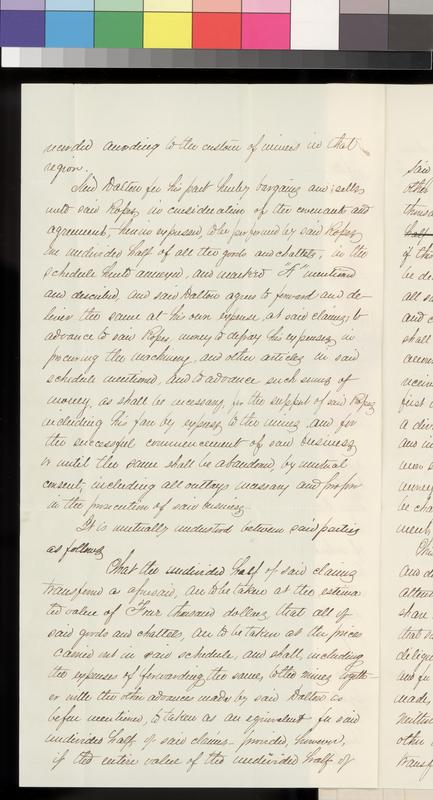 recorded according to the custom of miners in that
region.
And Dalton for his part hereby bargains and sells
unto said Roper, in consideration of the covenants and
agreements, herein expressed, to be performed by said Roper
one undivided half of all the goods and chattels, in the
schedule hereto annexed, and marked "A" mentioned
and described, and said Dalton agrees to forward and de-
liver the same at his own expense, at said claims; to
advance to said Roper money to defray his expenses in
procuring the machinery and other articles in said
schedule mentioned, and to advance such sums of
money, as shall be necessary, for the support of said Roper
including his fare by express to the mines and for
the successful commencement of said business
or until the same shall be abandoned, by mutual
consent, including all outlays necessary and proper
in the prosecution of said business
It is mutually understood between said parties
as follows
That the undivided half of said claims
transferred as aforesaid, are to be taken at the estima-
ted value of Four thousand dollars, that all of
said goods and chattels, are to be taken at the prices
carried out in said schedule, and shall, including
the expenses of forwarding the same, to the mines togeth-
er with the other advances made by said Dalton as
before mentioned, be taken as an equivalent for said
undivided half of said claims – provided, however,
if the entire value of the undivided half of
said
other
thousa
half
if the
be de
all su
and c
shall
first
a div
and in
be cha
and d
share
that s
made,
other
transf